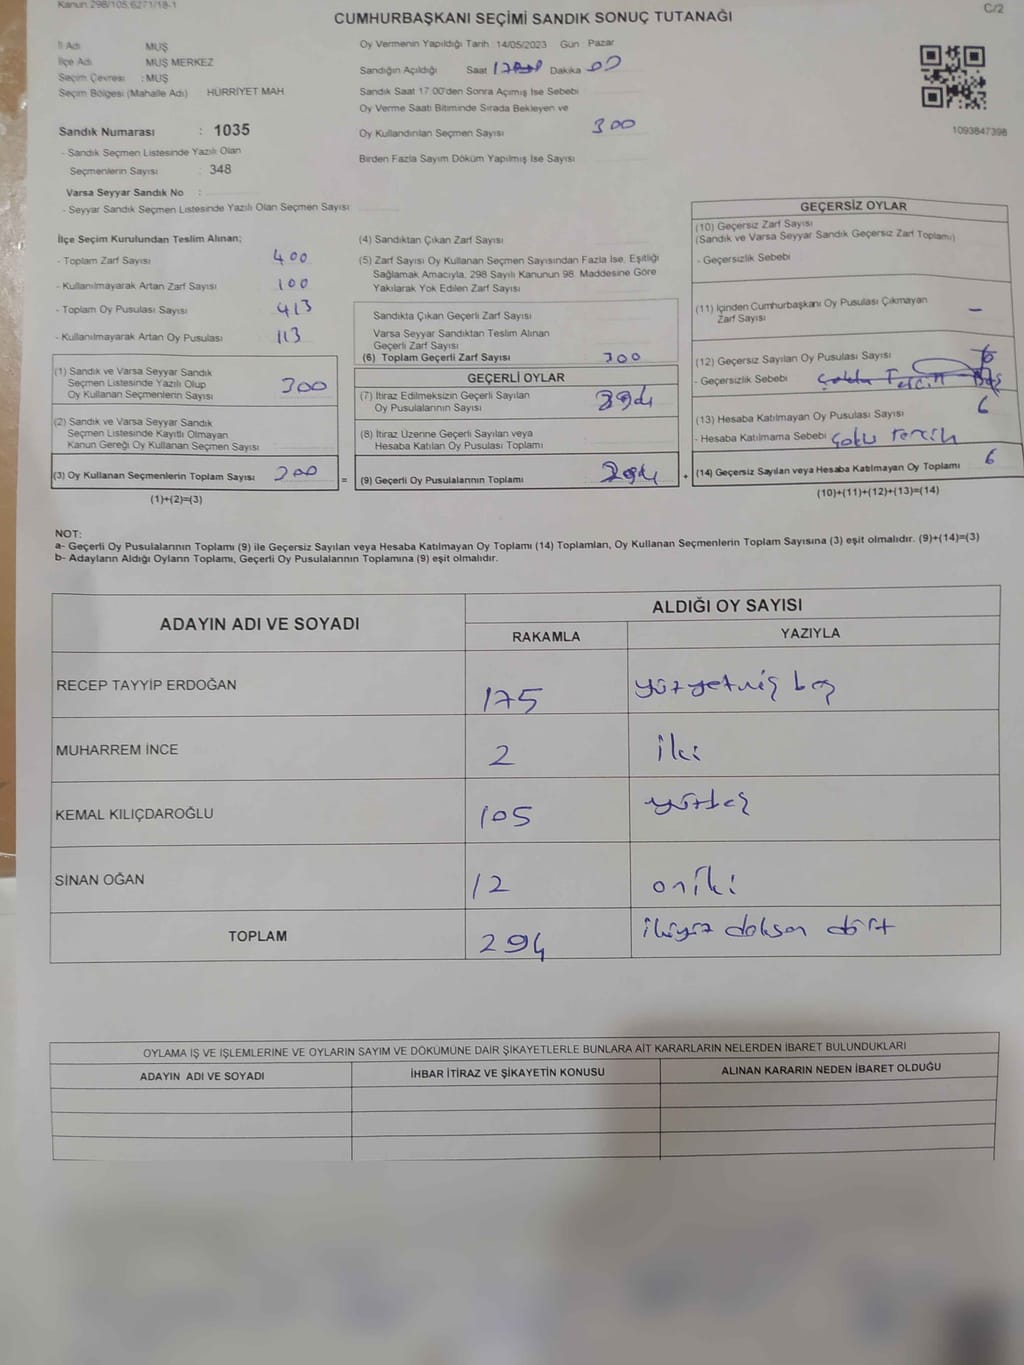 Kanun:298/105,6271/18-1
C/2
CUMHURBAŞKANI SEÇİMİ SANDIK SONUÇ TUTANAĞI
İl Adı MUŞ
İlçe Adı MUŞ MERKEZ
Seçim Çevresi : MUŞ
Seçim Bölgesi (Mahalle Adı) HÜRRİYET MAH
Sandık Numarası : 1035
- Sandık Seçmen Listesinde Yazılı Olan
Seçmenlerin Sayısı : 348
Varsa Seyyar Sandık No :
- Seyyar Sandık Seçmen Listesinde Yazılı Olan Seçmen Sayısı
Oy Vermenin Yapıldığı Tarih : 14/05/2023 Gün : Pazar
Sandığın Açıldığı Saat Dakika 00
Sandık Saat 17:00'den Sonra Açımış İse Sebebi
Oy Verme Saati Bitiminde Sırada Bekleyen ve
Oy Kullandırılan Seçmen Sayısı 300
Birden Fazla Sayım Döküm Yapılmış İse Sayısı
1093847398
İlçe Seçim Kurulundan Teslim Alınan;
- Toplam Zarf Sayısı 400
- Kullanılmayarak Artan Zarf Sayısı 100
- Toplam Oy Pusulası Sayısı 413
- Kullanılmayarak Artan Oy Pusulası 113
(1) Sandık ve Varsa Seyyar Sandık
Seçmen Listesinde Yazılı Olup
Oy Kullanan Seçmenlerin Sayısı 300
(2) Sandık ve Varsa Seyyar Sandık
Seçmen Listesinde Kayıtlı Olmayan
Kanun Gereği Oy Kullanan Seçmen Sayısı
(3) Oy Kullanan Seçmenlerin Toplam Sayısı 300
(1)+(2)=(3)
=
(4) Sandıktan Çıkan Zarf Sayısı
(5) Zarf Sayısı Oy Kullanan Seçmen Sayısından Fazla İse, Eşitliği
Sağlamak Amacıyla, 298 Sayılı Kanunun 98. Maddesine Göre
Yakılarak Yok Edilen Zarf Sayısı
Sandıkta Çıkan Geçerli Zarf Sayısı
Varsa Seyyar Sandıktan Teslim Alınan
Geçerli Zarf Sayısı
(6) Toplam Geçerli Zarf Sayısı 300
GEÇERLİ OYLAR
(7) İtiraz Edilmeksizin Geçerli Sayılan
Oy Pusulalarının Sayısı 294
(8) İtiraz Üzerine Geçerli Sayılan veya
Hesaba Katılan Oy Pusulası Toplamı
(9) Geçerli Oy Pusulalarının Toplamı 294
+
GEÇERSİZ OYLAR
(10) Geçersiz Zarf Sayısı
(Sandık ve Varsa Seyyar Sandık Geçersiz Zarf Toplamı)
- Geçersizlik Sebebi
(11) İçinden Cumhurbaşkanı Oy Pusulası Çıkmayan
Zarf Sayısı -
(12) Geçersiz Sayılan Oy Pusulası Sayısı
- Geçersizlik Sebebi Çoklu Tercih
(13) Hesaba Katılmayan Oy Pusulası Sayısı 6
- Hesaba Katılmama Sebebi Çoklu Tercih
(14) Geçersiz Sayılan veya Hesaba Katılmayan Oy Toplamı 6
(10)+(11)+(12)+(13)=(14)
NOT:
a- Geçerli Oy Pusulalarının Toplamı (9) ile Geçersiz Sayılan veya Hesaba Katılmayan Oy Toplamı (14) Toplamları, Oy Kullanan Seçmenlerin Toplam Sayısına (3) eşit olmalıdır. (9)+(14)=(3)
b- Adayların Aldığı Oyların Toplamı, Geçerli Oy Pusulalarının Toplamına (9) eşit olmalıdır.
ADAYIN ADI VE SOYADI
ALDIĞI OY SAYISI
RAKAMLA YAZIYLA
RECEP TAYYİP ERDOĞAN 175 yüzyetmiş beş
MUHARREM İNCE 2 iki
KEMAL KILIÇDAROĞLU 105 yüzbeş
SİNAN OĞAN 12 oniki
TOPLAM 294 ikiyüz doksan dört
OYLAMA İŞ VE İŞLEMLERİNE VE OYLARIN SAYIM VE DÖKÜMÜNE DAİR ŞİKAYETLERLE BUNLARA AİT KARARLARIN NELERDEN İBARET BULUNDUKLARI
ADAYIN ADI VE SOYADI İHBAR İTİRAZ VE ŞİKAYETİN KONUSU ALINAN KARARIN NEDEN İBARET OLDUĞU